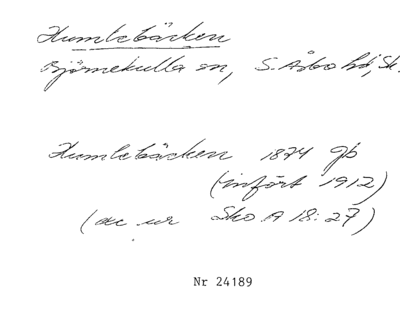 Humlebäcken
Björnekulla sn, S. Åsbo hd, Sk.
Humlebäcken 1874 gb
(infört 1912)
(ac ur Sko A 18:27)
Nr 24189